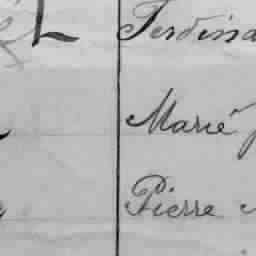 L Ferdina
Marié
Pierre